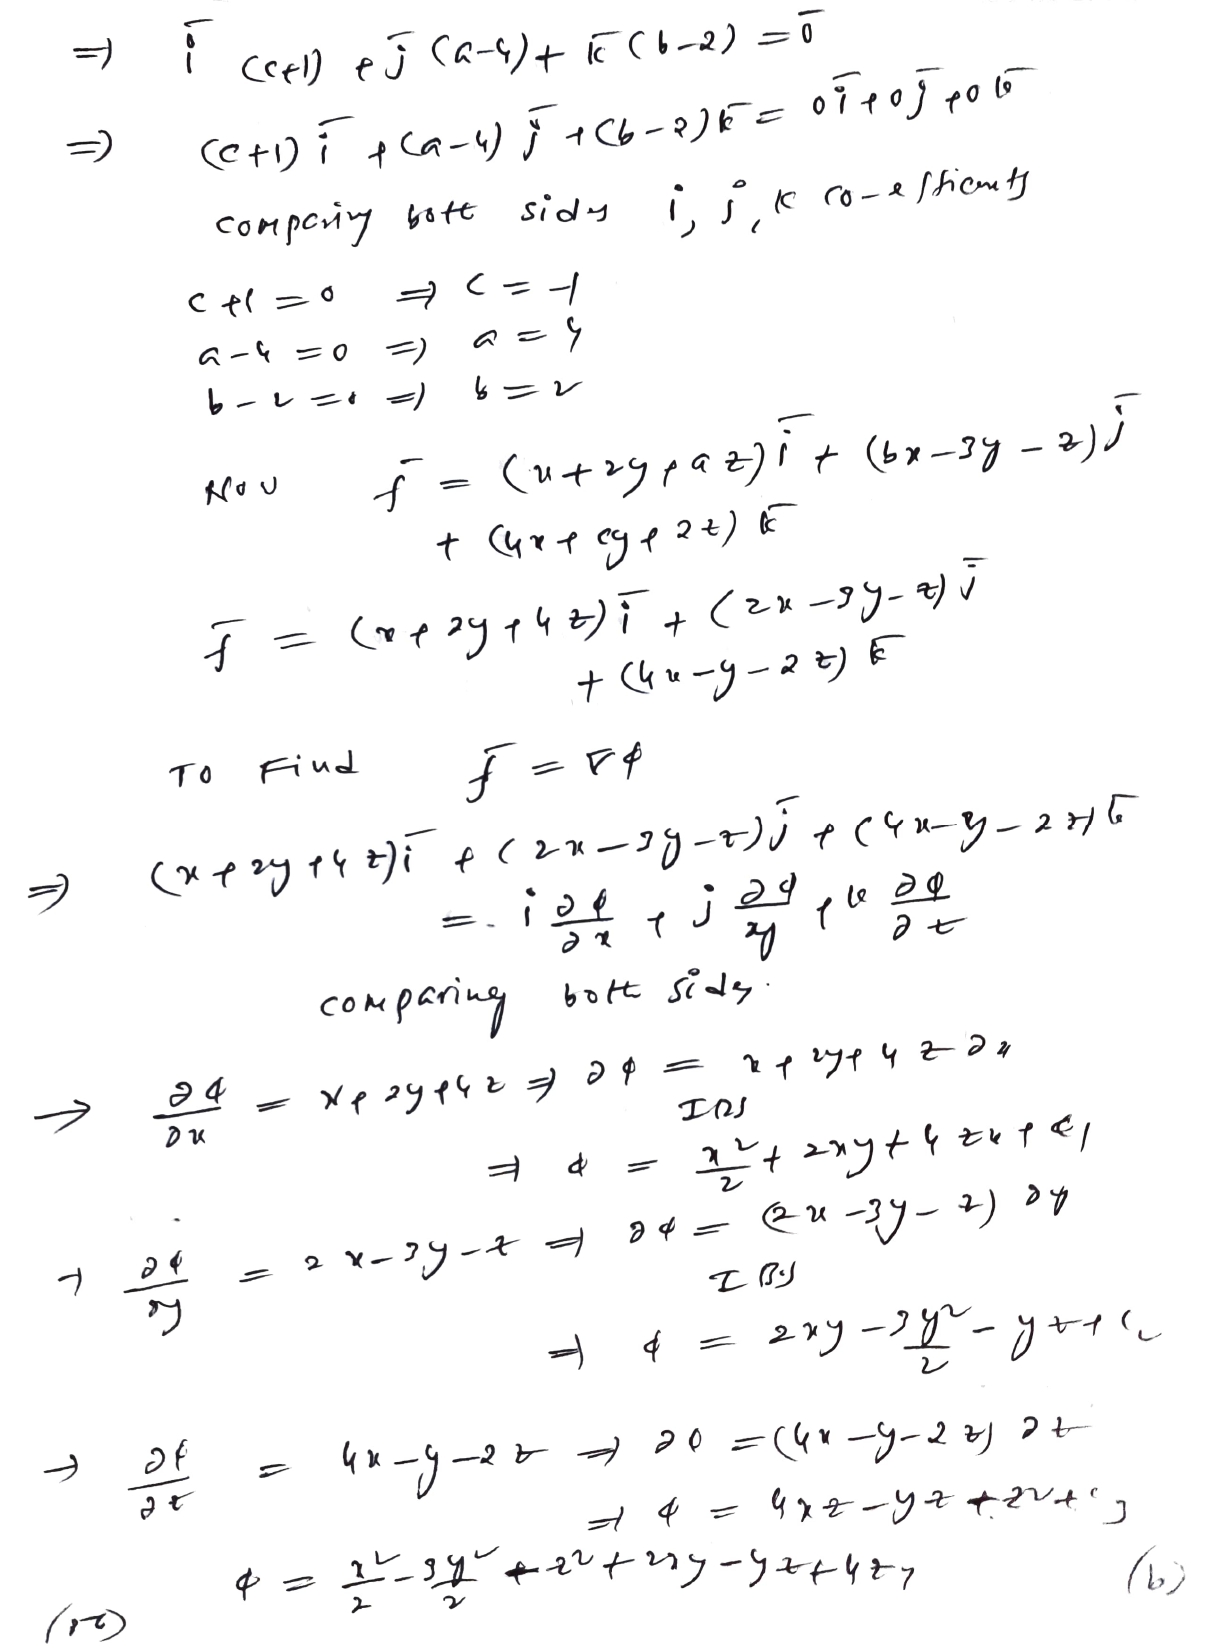 ⇒ i̅ (c+1) + j̅ (a-4) + k̅ (b-2) = 0̅
⇒ (c+1) i̅ + (a-4) j̅ + (b-2) k̅ = 0i̅ + 0j̅ + 0k̅
comparing both sides i, j, k co-efficients
c+1 = 0 ⇒ c = -1
a-4 = 0 ⇒ a = 4
b-2 = 0 ⇒ b = 2
Now f̅ = (x+2y+az) i̅ + (bx-3y-z) j̅
+ (4x+cy+2z) k̅
f̅ = (x+2y+4z) i̅ + (2x-3y-z) j̅
+ (4x-y-2z) k̅
To Find f̅ = ∇φ
⇒ (x+2y+4z) i̅ + (2x-3y-z) j̅ + (4x-y-2z) k̅
= i ∂φ/∂x + j ∂φ/∂y + k ∂φ/∂z
comparing both sides.
→ ∂φ/∂x = x+2y+4z ⇒ ∂φ = x+2y+4z ∂x
IBS
⇒ φ = x²/2 + 2xy + 4zx + c₁
→ ∂φ/∂y = 2x-3y-z ⇒ ∂φ = (2x-3y-z) ∂y
IBS
⇒ φ = 2xy - 3y²/2 - yz + c₂
→ ∂φ/∂z = 4x-y-2z ⇒ ∂φ = (4x-y-2z) ∂z
⇒ φ = 4xz - yz + z² + c₃
φ = x²/2 - 3y²/2 + z² + 2xy - yz + 4zx
(b)